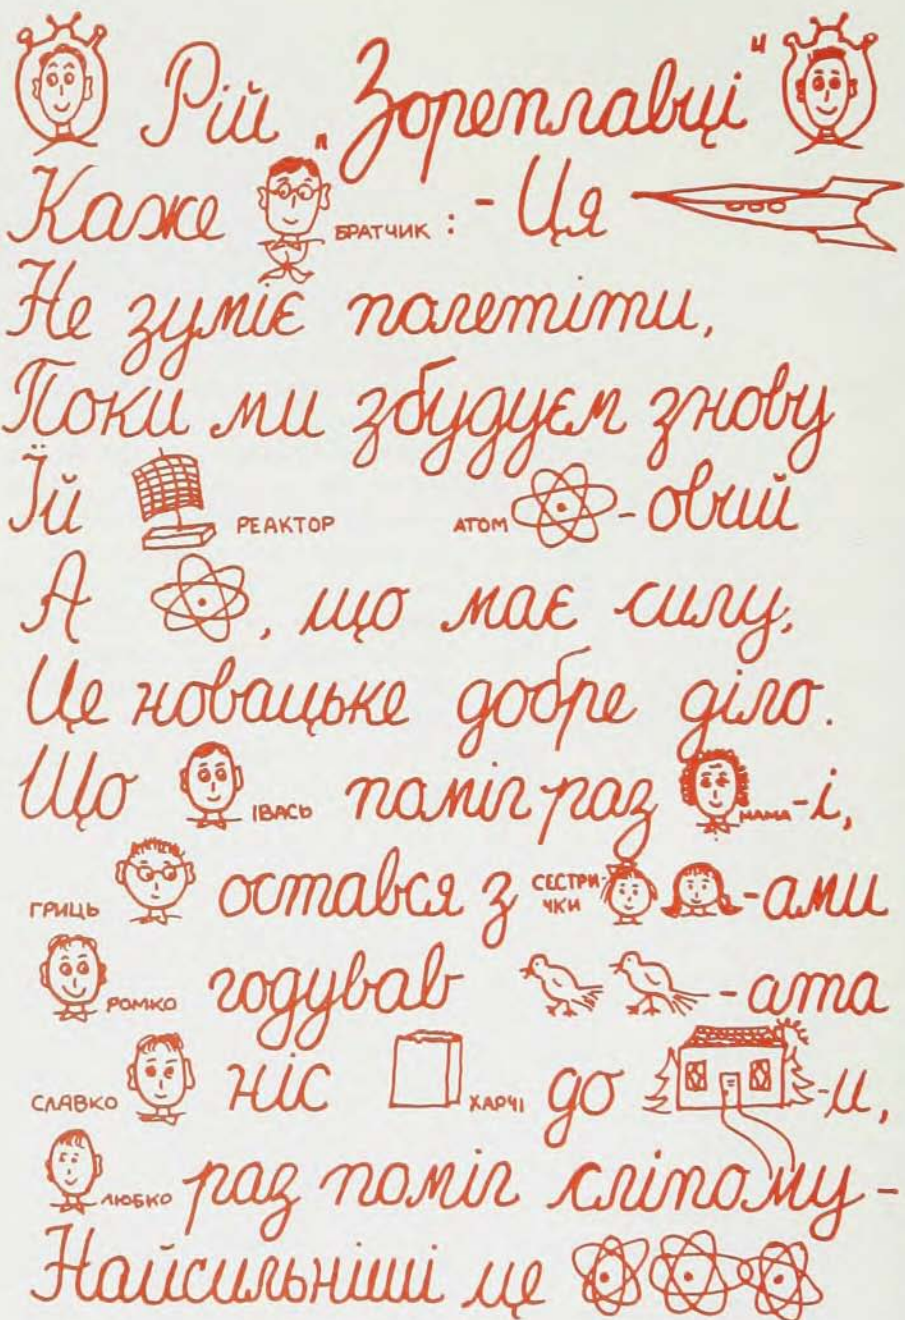 Рій „Зореплавці"
Каже БРАТЧИК : - Ця
Не зуміє полетіти,
Поки ми збудуєм знову
Їй РЕАКТОР АТОМ -овий
А , що має силу,
Це новацьке добре діло.
Що ІВАСЬ поміг раз МАМА -і,
ГРИЦЬ остався з СЕСТРИ-ЧКИ -ами
РОМКО годував -ата
СЛАВКО ніс ХАРЧІ до -и,
ЛЮБКО раз поміг сліпому -
Найсильніші це